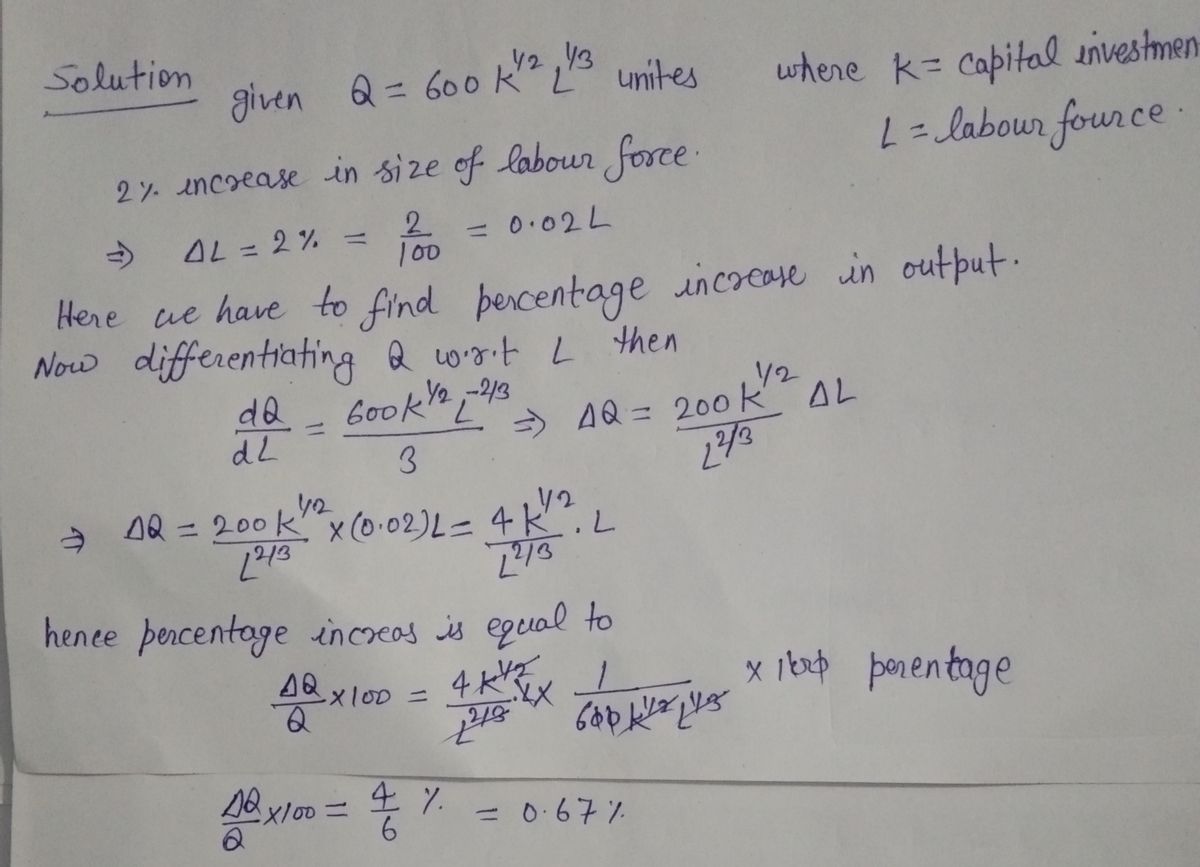 Solution given Q = 600 K^1/2 L^1/3 unites where K = capital investmen
L = labour fource.
2% increase in size of labour force.
⇒ ΔL = 2% = 2/100 = 0.02L
Here we have to find percentage increase in output.
Now differentiating Q w.r.t L then
dQ/dL = 600K^1/2 L^-2/3 / 3 ⇒ ΔQ = 200K^1/2 / L^2/3 ΔL
⇒ ΔQ = 200K^1/2 / L^2/3 × (0.02)L = 4K^1/2 / L^2/3 . L
hence percentage increas is equal to
ΔQ/Q × 100 = 4K^1/2 / L^2/3 . L × 1 / 600K^1/2 L^1/3 × 100 perentage
ΔQ/Q × 100 = 4/6 % = 0.67%